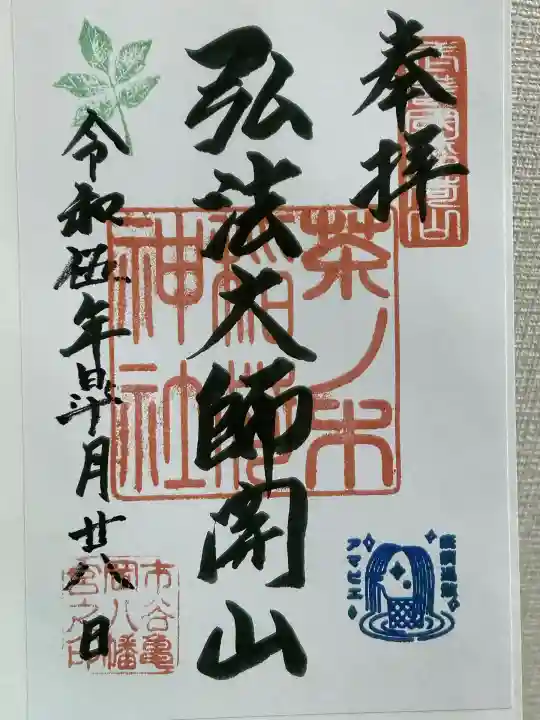 奉拝
弘法大師開山
茶ノ木
稲荷
神社
令和伍年皐月廿八日
市谷亀
岡八幡
宮之印
アマビエ